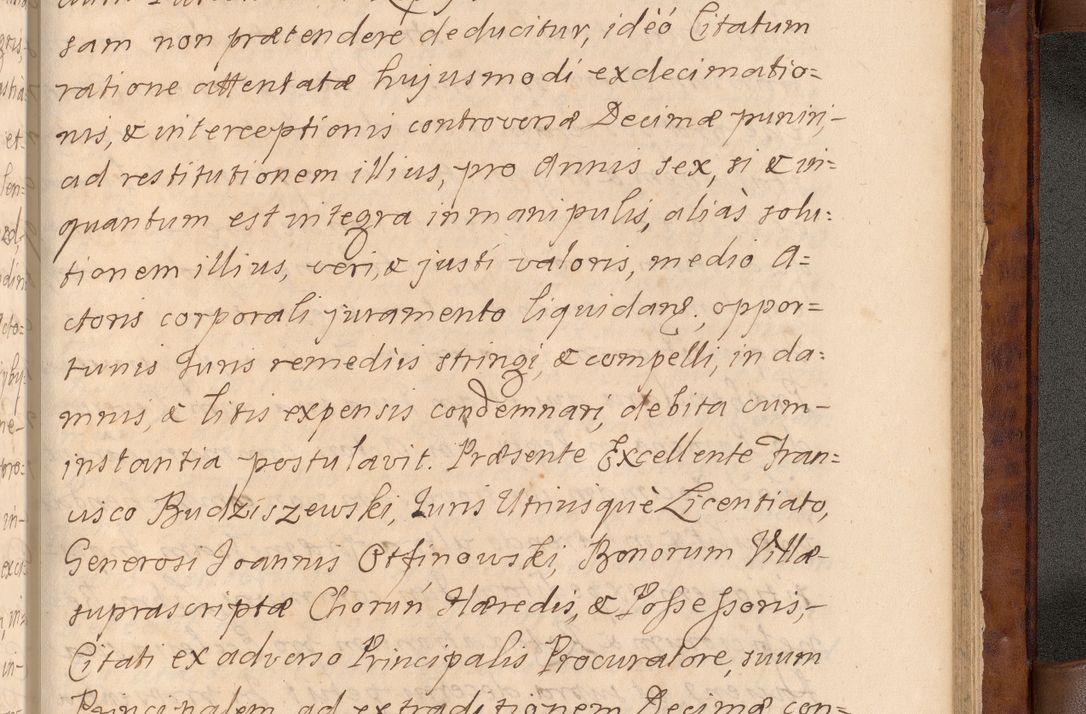 sam non prætendere deducitur, ideò Citatum
ratione attentatæ hujusmodi exdecimatio=
nis, & interceptionis controversæ Decimæ puniri,
ad restitutionem illius, pro Annis sex, si & in=
quantum est integra in manipulis, aliàs solu=
tionem illius, veri, & justi valoris, medio A=
ctoris corporali juramento liquidand, oppor=
tunis Juris remediis stringi, & compelli, in da=
mnis, & litis expensis condemnari, debita cum
instantia postulavit. Præsente Excellente Fran=
cisco Budziszewski, Juris Utriusquè Licentiato,
Generosi Joannis Otfinowski, Bonorum Villæ
suprascriptæ Choruń Hæredis, & Possessoris,
Citati ex adverso Principalis Procuratore, suum
Principalem ad extraditionem Decimæ con=